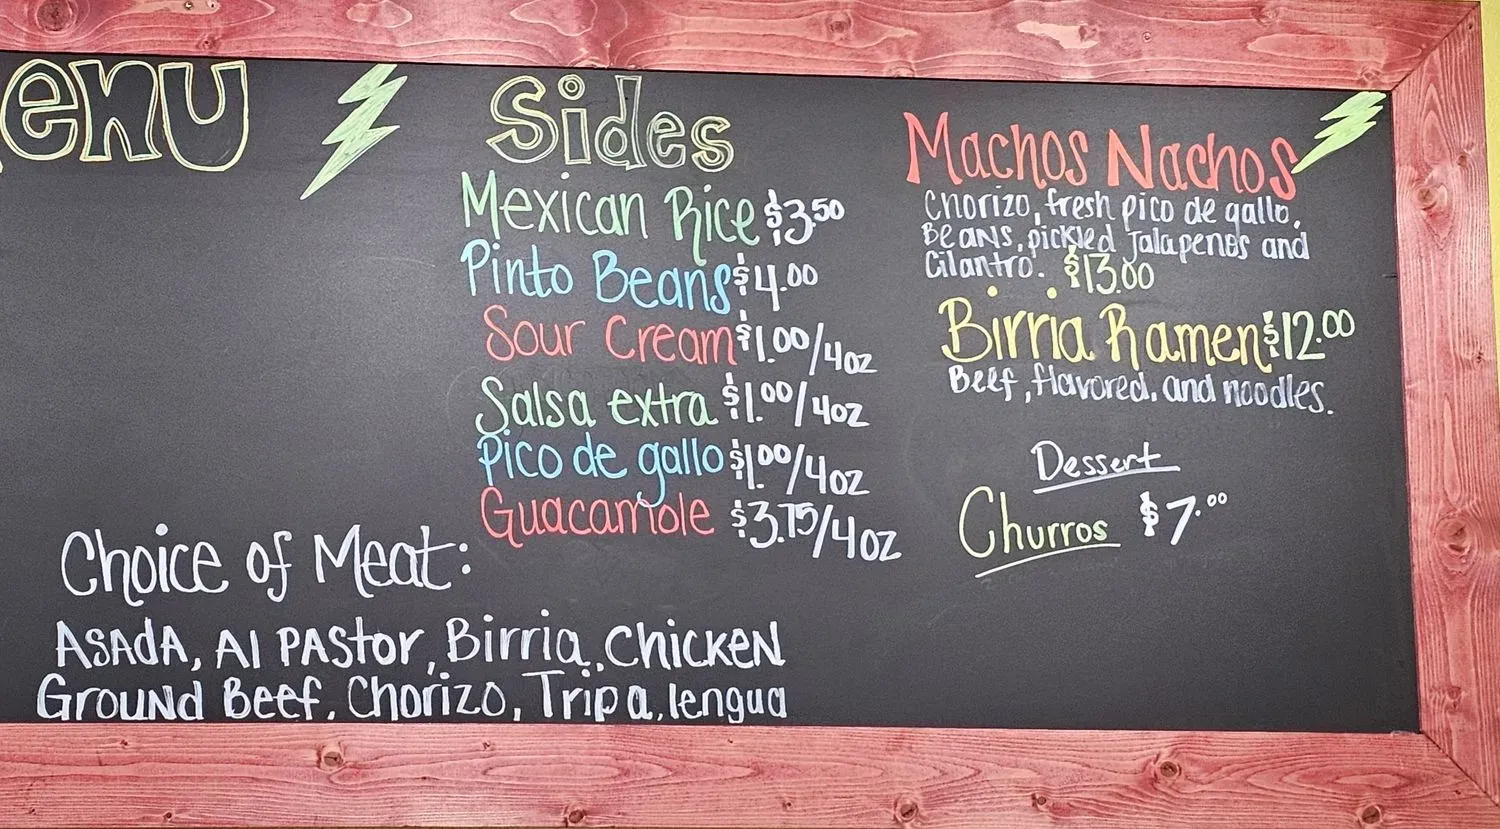 enu
Sides
Mexican Rice $3.50
Pinto Beans $4.00
Sour Cream $1.00/4oz
Salsa extra $1.00/4oz
Pico de gallo $1.00/4oz
Guacamole $3.75/4oz
Choice of Meat:
Asada, Al Pastor, Birria, Chicken
Ground Beef, Chorizo, Tripa, lengua
Machos Nachos
Chorizo, fresh pico de gallo,
Beans, pickled Jalapenos and
Cilantro. $13.00
Birria Ramen $12.00
Beef, flavored, and noodles.
Dessert
Churros $7.00